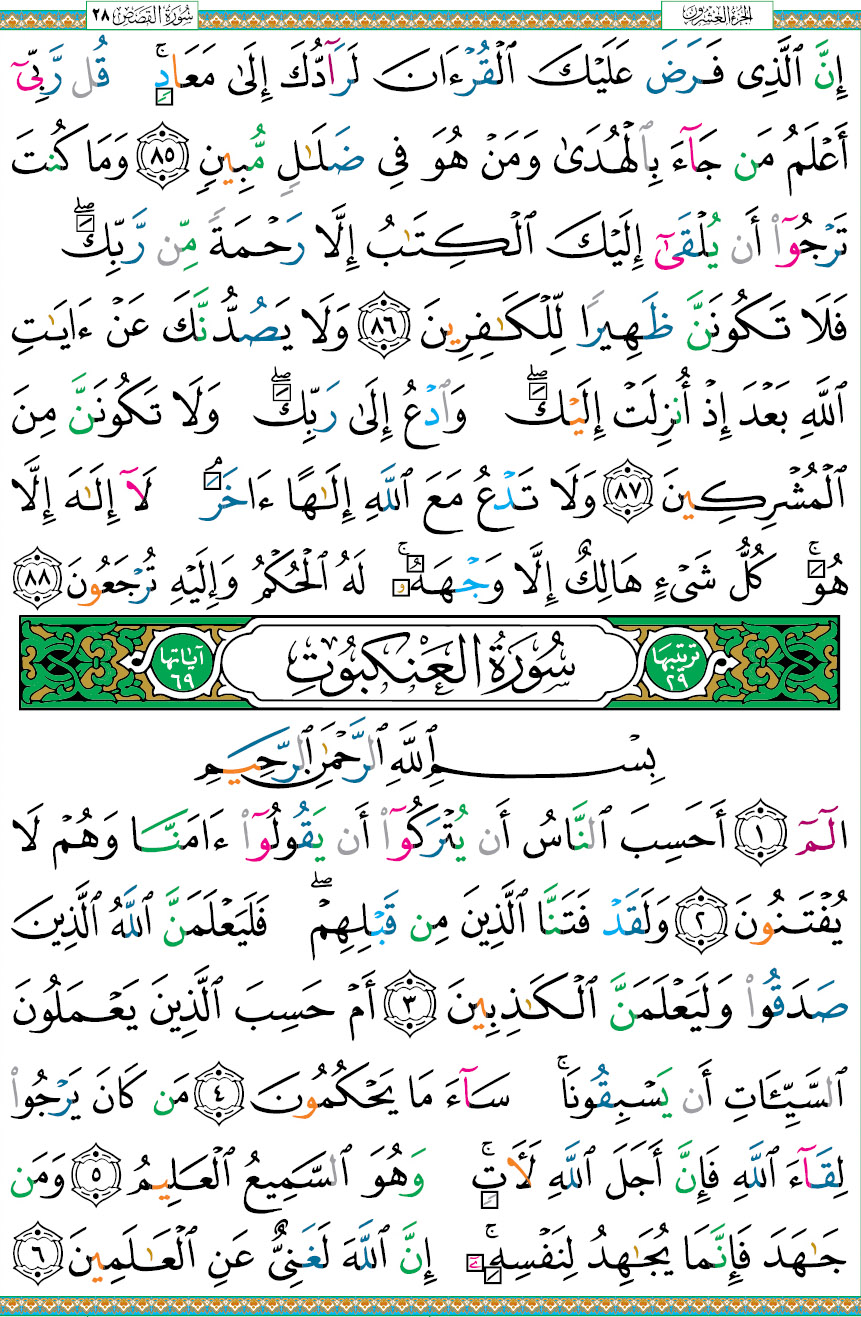 الجزء العشرون
سورة القصص ٢٨
إِنَّ ٱلَّذِى فَرَضَ عَلَيْكَ ٱلْقُرْءَانَ لَرَآدُّكَ إِلَىٰ مَعَادٍۢ ۚ قُل رَّبِّىٓ
أَعْلَمُ مَن جَآءَ بِٱلْهُدَىٰ وَمَنْ هُوَ فِى ضَلَـٰلٍ مُّبِينٍ ٨٥ وَمَا كُنتَ
تَرْجُوٓا۟ أَن يُلْقَىٰٓ إِلَيْكَ ٱلْكِتَـٰبُ إِلَّا رَحْمَةً مِّن رَّبِّكَ ۖ
فَلَا تَكُونَنَّ ظَهِيرًا لِّلْكَـٰفِرِينَ ٨٦ وَلَا يَصُدُّنَّكَ عَنْ ءَايَـٰتِ
ٱللَّهِ بَعْدَ إِذْ أُنزِلَتْ إِلَيْكَ ۖ وَٱدْعُ إِلَىٰ رَبِّكَ ۖ وَلَا تَكُونَنَّ مِنَ
ٱلْمُشْرِكِينَ ٨٧ وَلَا تَدْعُ مَعَ ٱللَّهِ إِلَـٰهًا ءَاخَرَ ۘ لَآ إِلَـٰهَ إِلَّا
هُوَ ۚ كُلُّ شَىْءٍ هَالِكٌ إِلَّا وَجْهَهُۥ ۚ لَهُ ٱلْحُكْمُ وَإِلَيْهِ تُرْجَعُونَ ٨٨
ترتيبها ٢٩ سُورَةُ العَنْكَبُوتِ آياتها ٦٩
بِسْمِ ٱللَّهِ ٱلرَّحْمَـٰنِ ٱلرَّحِيمِ
الٓمٓ ١ أَحَسِبَ ٱلنَّاسُ أَن يُتْرَكُوٓا۟ أَن يَقُولُوٓا۟ ءَامَنَّا وَهُمْ لَا
يُفْتَنُونَ ٢ وَلَقَدْ فَتَنَّا ٱلَّذِينَ مِن قَبْلِهِمْ ۖ فَلَيَعْلَمَنَّ ٱللَّهُ ٱلَّذِينَ
صَدَقُوا۟ وَلَيَعْلَمَنَّ ٱلْكَـٰذِبِينَ ٣ أَمْ حَسِبَ ٱلَّذِينَ يَعْمَلُونَ
ٱلسَّيِّـَٔاتِ أَن يَسْبِقُونَا ۚ سَآءَ مَا يَحْكُمُونَ ٤ مَن كَانَ يَرْجُوا۟
لِقَآءَ ٱللَّهِ فَإِنَّ أَجَلَ ٱللَّهِ لَـَٔاتٍۢ ۚ وَهُوَ ٱلسَّمِيعُ ٱلْعَلِيمُ ٥ وَمَن
جَـٰهَدَ فَإِنَّمَا يُجَـٰهِدُ لِنَفْسِهِۦٓ ۚ إِنَّ ٱللَّهَ لَغَنِىٌّ عَنِ ٱلْعَـٰلَمِينَ ٦